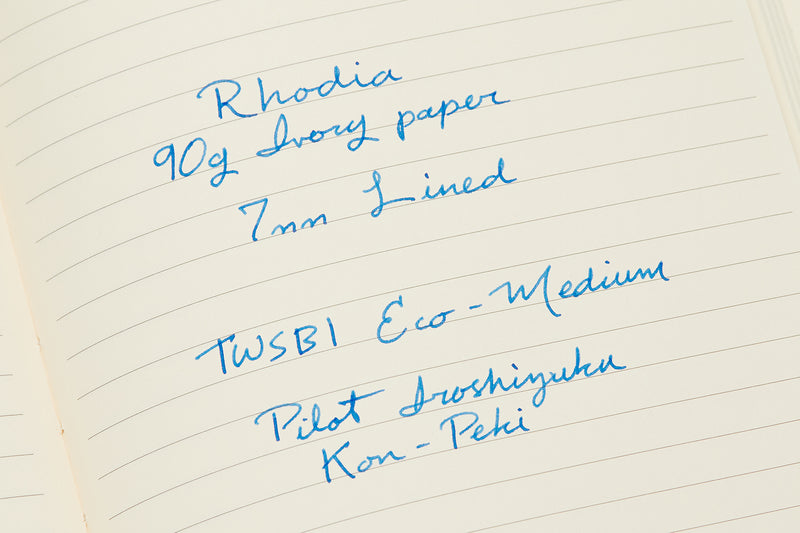 Rhodia
90g Ivory paper
7mm Lined
TWSBI Eco - Medium
Pilot Iroshizuku
Kon - Peki